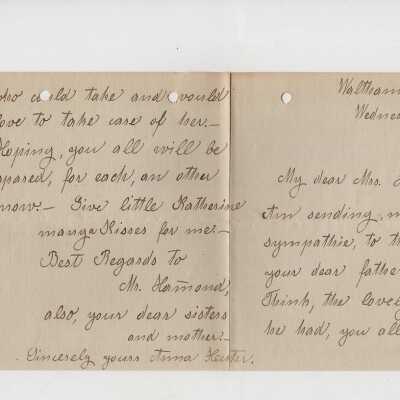 who could take and would
love to take care of her.—
Hoping, you all will be
spared, for each, an other
now.— Give little Katherine
manya Kisses for me.—
Best Regards to
Mr. Hammond,
also, your dear sisters
and mother.—
Sincerely yours Anna
Waltham
Wednes
My dear Mrs.
Am sending, m
sympathie, to th
your dear father
Think, the loved
he had, you all